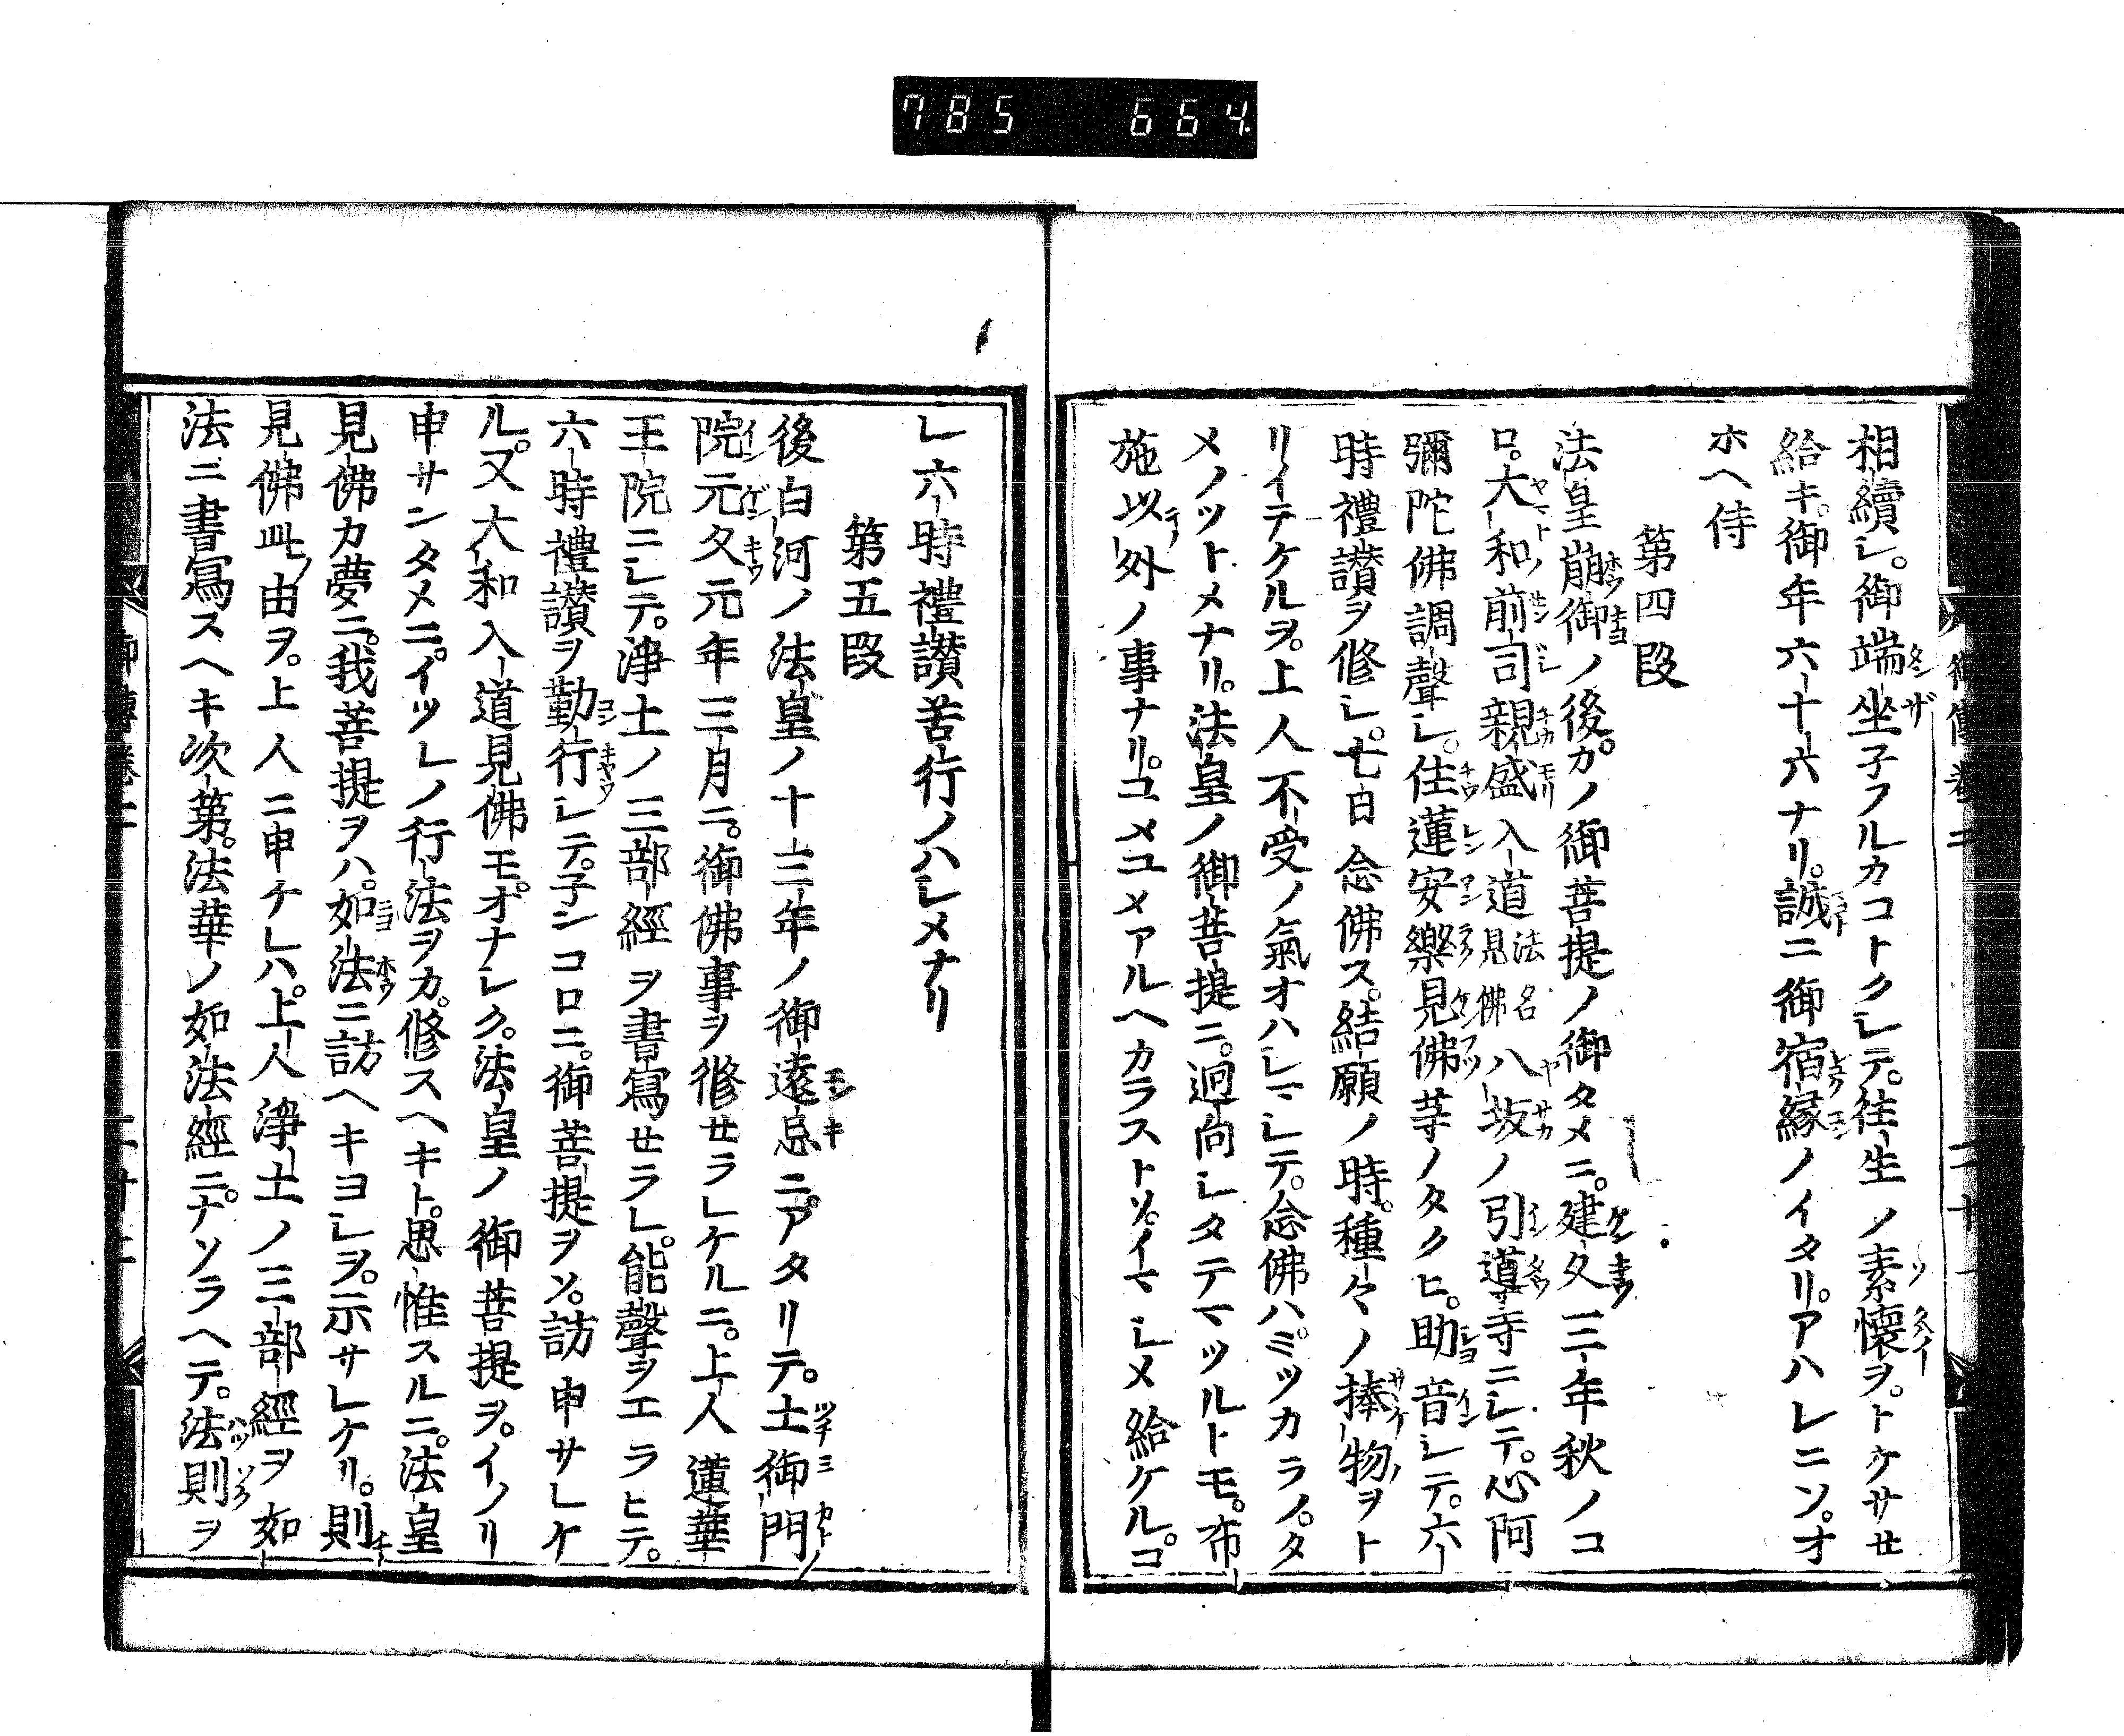 785 664
相續シ。御端坐子フルカコトクシテ。往生ノ素懷ヲ。トケサせ
給キ。御年六十六ナリ。誠ニ御宿縁ノイタリ。アハレニソ。オ
ホヘ侍
第四段
法皇崩御ノ後。カノ御菩提ノ御タメニ。建久三年秋ノコ
ロ。大和前司親盛入道法名見佛八坂ノ引導寺ニシテ。心阿
彌陀佛調聲シ。住蓮安樂見佛等ノタクヒ。助音シテ。六
時禮讃ヲ修シ。七日念佛ス。結願ノ時。種々ノ捧物ヲト
リイテケルヲ。上人不受ノ氣オハシマシテ。念佛ハミツカラノ。タ
メノツトメナリ。法皇ノ御菩提ニ。迴向シタテマツルトモ。布
施以外ノ事ナリ。ユメユメアルヘカラストソ。イマシメ給ケル。コ
レ六時禮讃苦行ノハシメナリ
第五段
後白河ノ法皇ノ十三年ノ御遠忌ニ。アタリテ。土御門
院元久元年三月ニ。御佛事ヲ修せラレケルニ。上人蓮華
王院ニシテ。淨土ノ三部經ヲ書寫せラレ。能聲ヲエラヒテ。
六時禮讃ヲ勤行シテ。子ンコロニ。御菩提ヲソ。訪申サレケ
ル。又大和入道見佛モ。オナシク。法皇ノ御菩提ヲ。イノリ
申サンタメニ。イツレノ行法ヲカ。修スヘキト。思惟スルニ。法皇
見佛カ夢ニ。我菩提ヲハ。如法ニ訪ヘキヨシヲ。示サレケリ。則
見佛此由ヲ。上人ニ申ケレハ。上人淨土ノ三部經ヲ如
法ニ書寫スヘキ次第。法華ノ如法經ニ。ナソラヘテ。法則ヲ